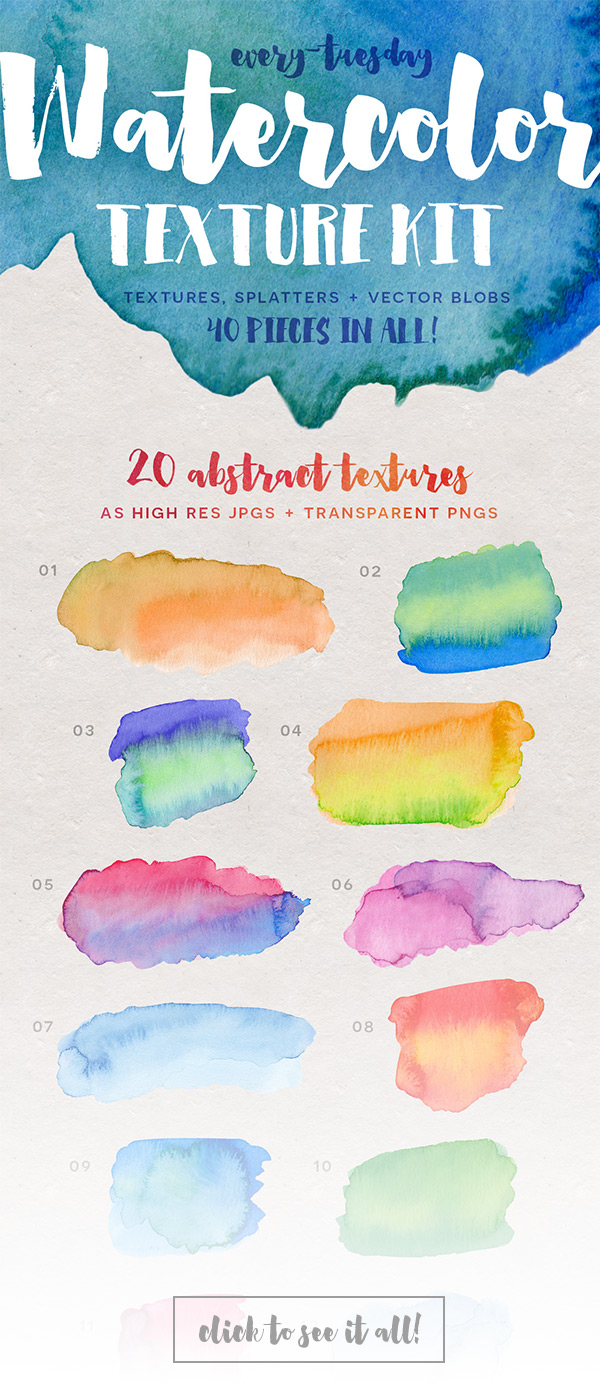 every-tuesday
Watercolor
TEXTURE KIT
TEXTURES, SPLATTERS + VECTOR BLOBS
40 PIECES IN ALL!
20 abstract textures
AS HIGH RES JPGS + TRANSPARENT PNGS
01
02
03
04
05
06
07
08
09
10
click to see it all!